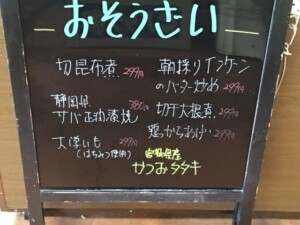 おそうざい
切昆布煮 299円
静岡県 380円
サバ正油漬焼
大学いも 299円
(はちみつ使用)
朝採りインゲン
のバター炒め 299円
切干大根煮 299円
鶏からあげ 299円
宮崎県産
かつおタタキ